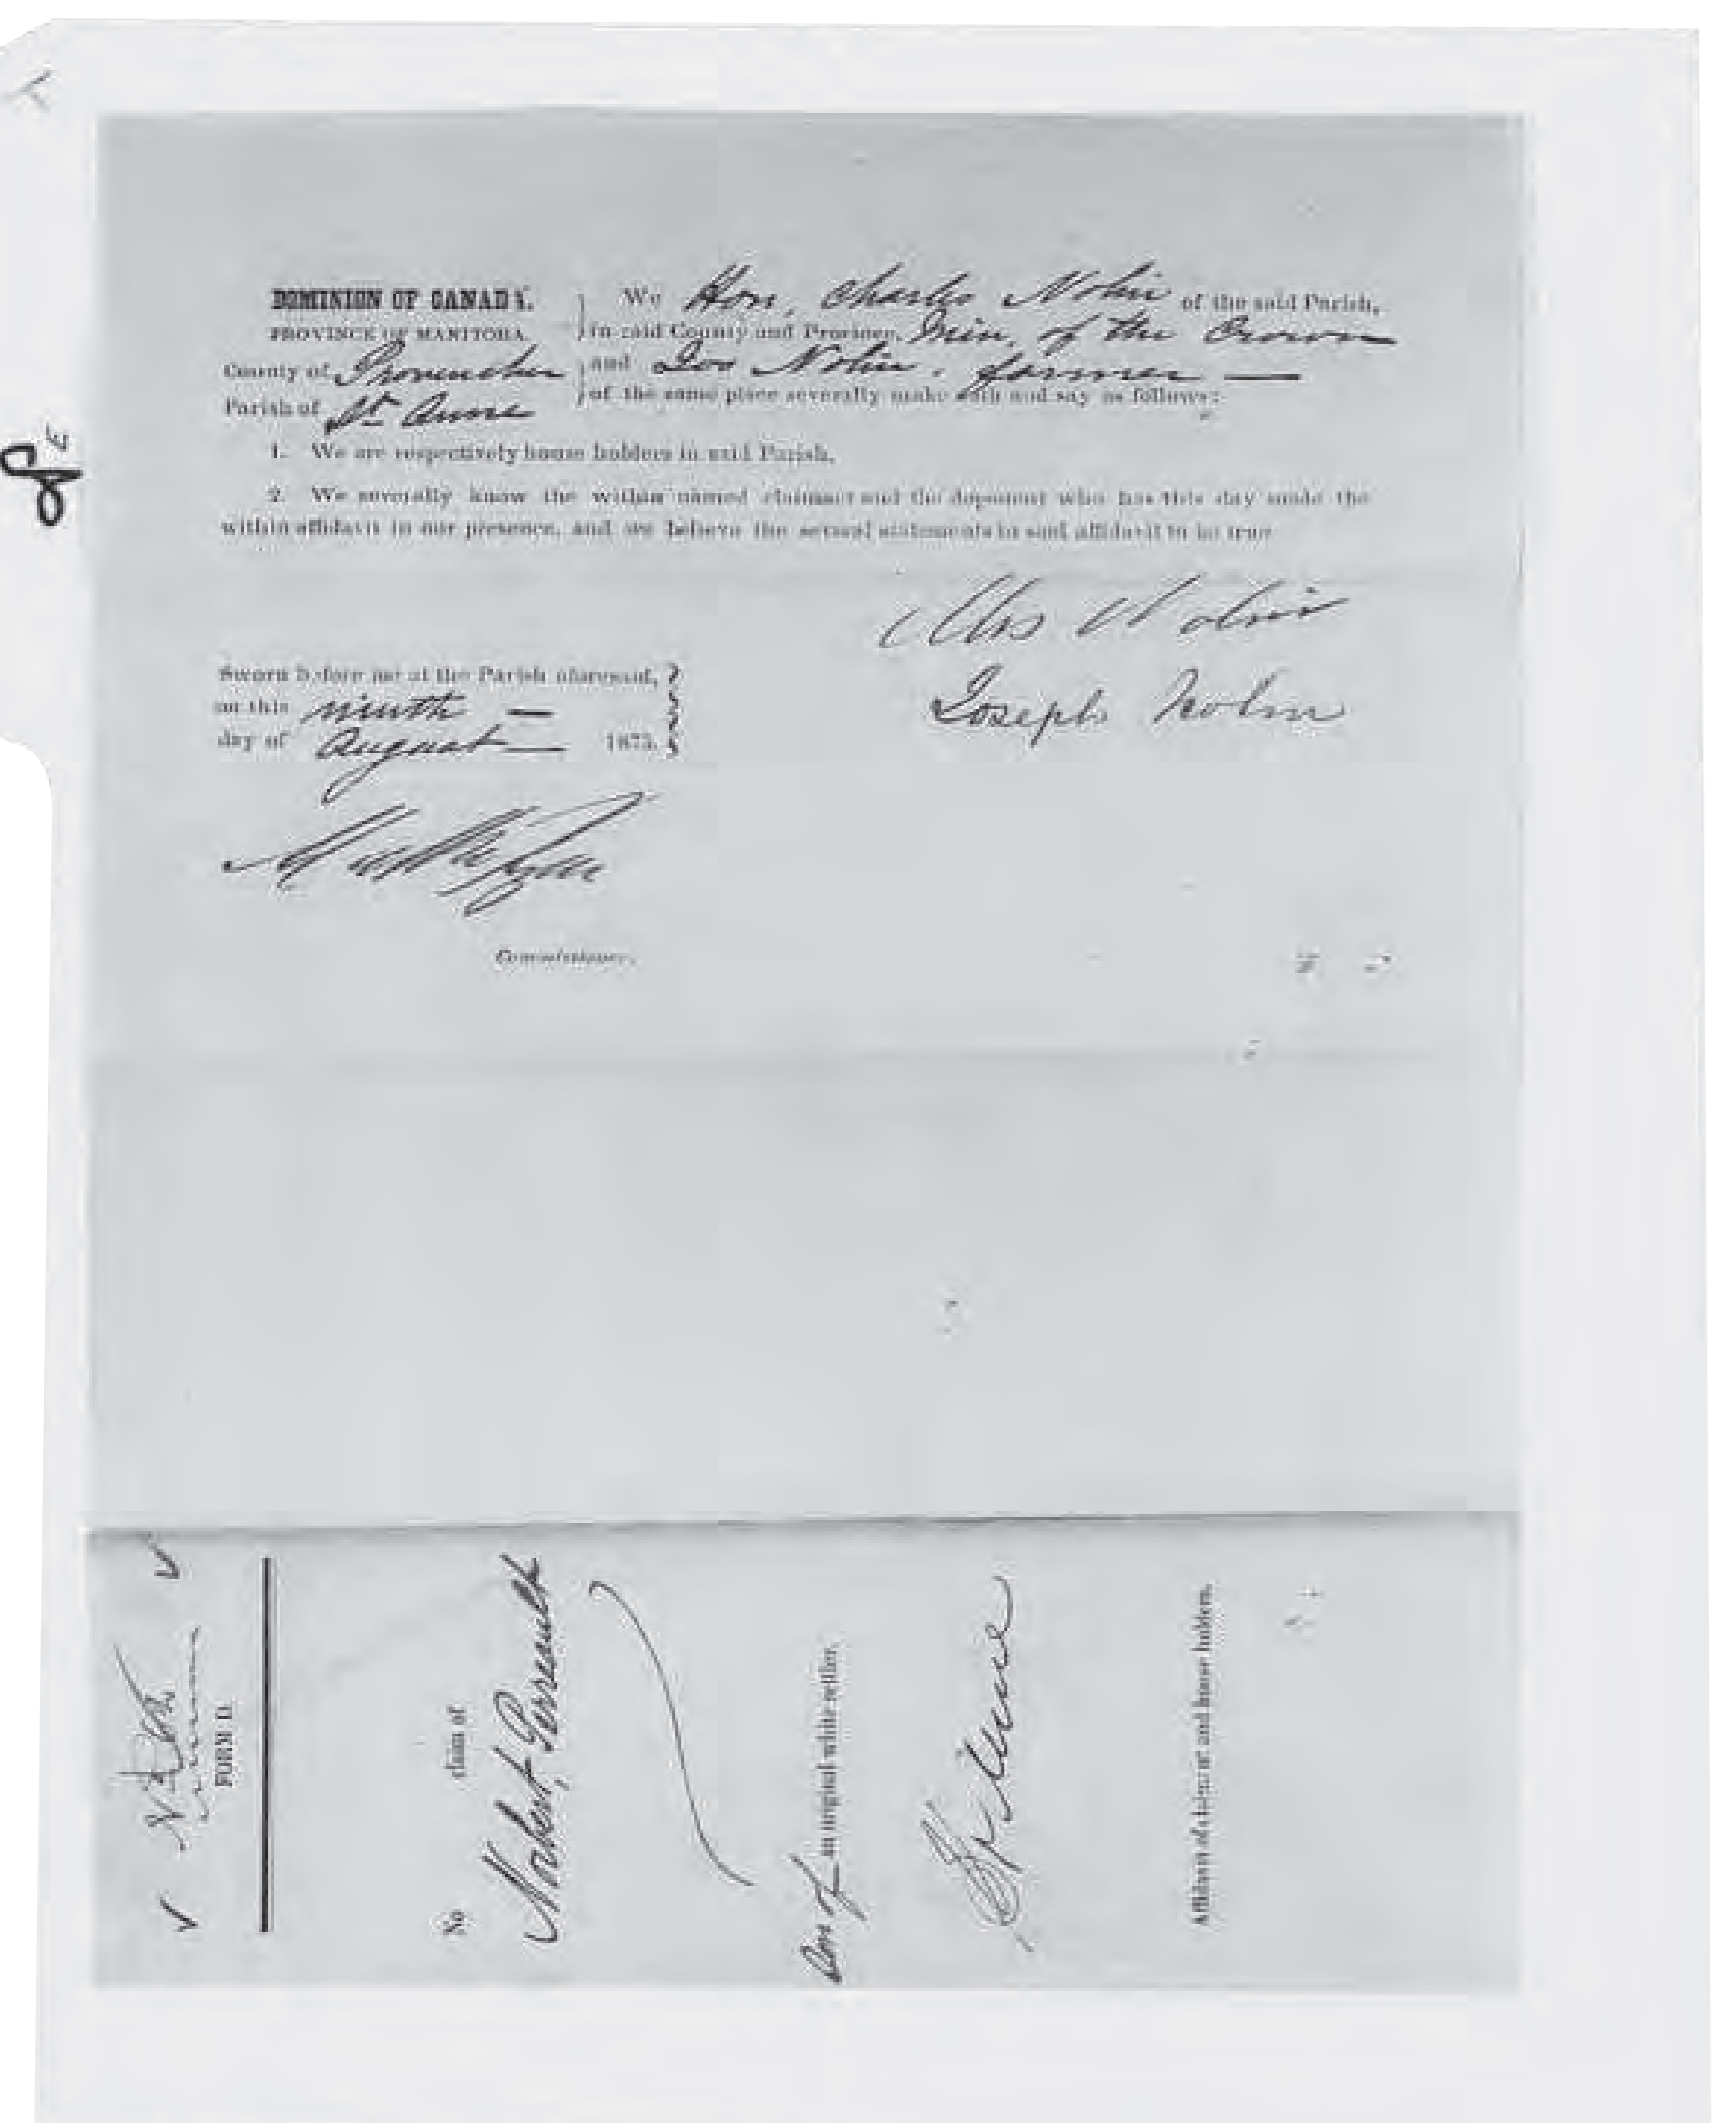 DOMINION OF CANADA.
PROVINCE OF MANITOBA.
County of Provencher
Parish of St Anne
We Hon. Charles Nolin of the said Parish,
in said County and Province, Min. of the Crown
and Jos Nolin, farmer —
of the same place severally make oath and say as follows:
1. We are respectively house holders in said Parish.
2. We severally know the within named claimant and the deponent who has this day made the
within affidavit in our presence, and we believe the several statements in said affidavit to be true
Chs Nolin
Joseph Nolin
Sworn before me at the Parish aforesaid,
on this ninth —
day of August — 1875.
Commissioner.
FORM D.
No claim of
Norbert Perreault
Son of an original white settler.
St Anne
Affidavit of claimant and house holders.